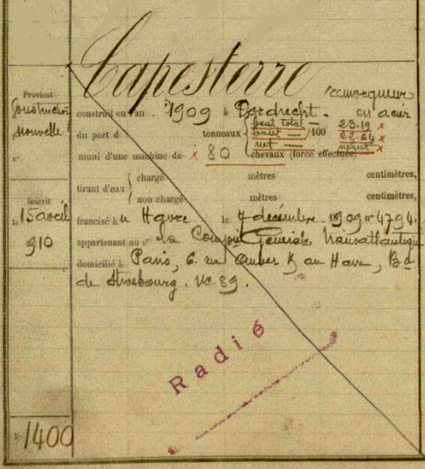 Capesterre remorqueur
Provient
Construction
Nouvelle
n°
construit en l'an : 1909 à Dordrecht - en acier
du port d tonneaux /100
brut total — 23.19 x
brut — 22.64 x
net — néant x
muni d'une machine de x 80 chevaux (force effectuée)
tirant d'eau { chargé mètres centimètres,
non chargé mètres centimètres,
Inscrit
le 15 avril
1910
francisé au Havre le 7 décembre 1909 n° 4794.
appartenant au sr la Compagnie Générale Transatlantique
domicilié à Paris, 6. rue Auber & au Havre, Bd
de Strasbourg. No 89.
Radié
1400